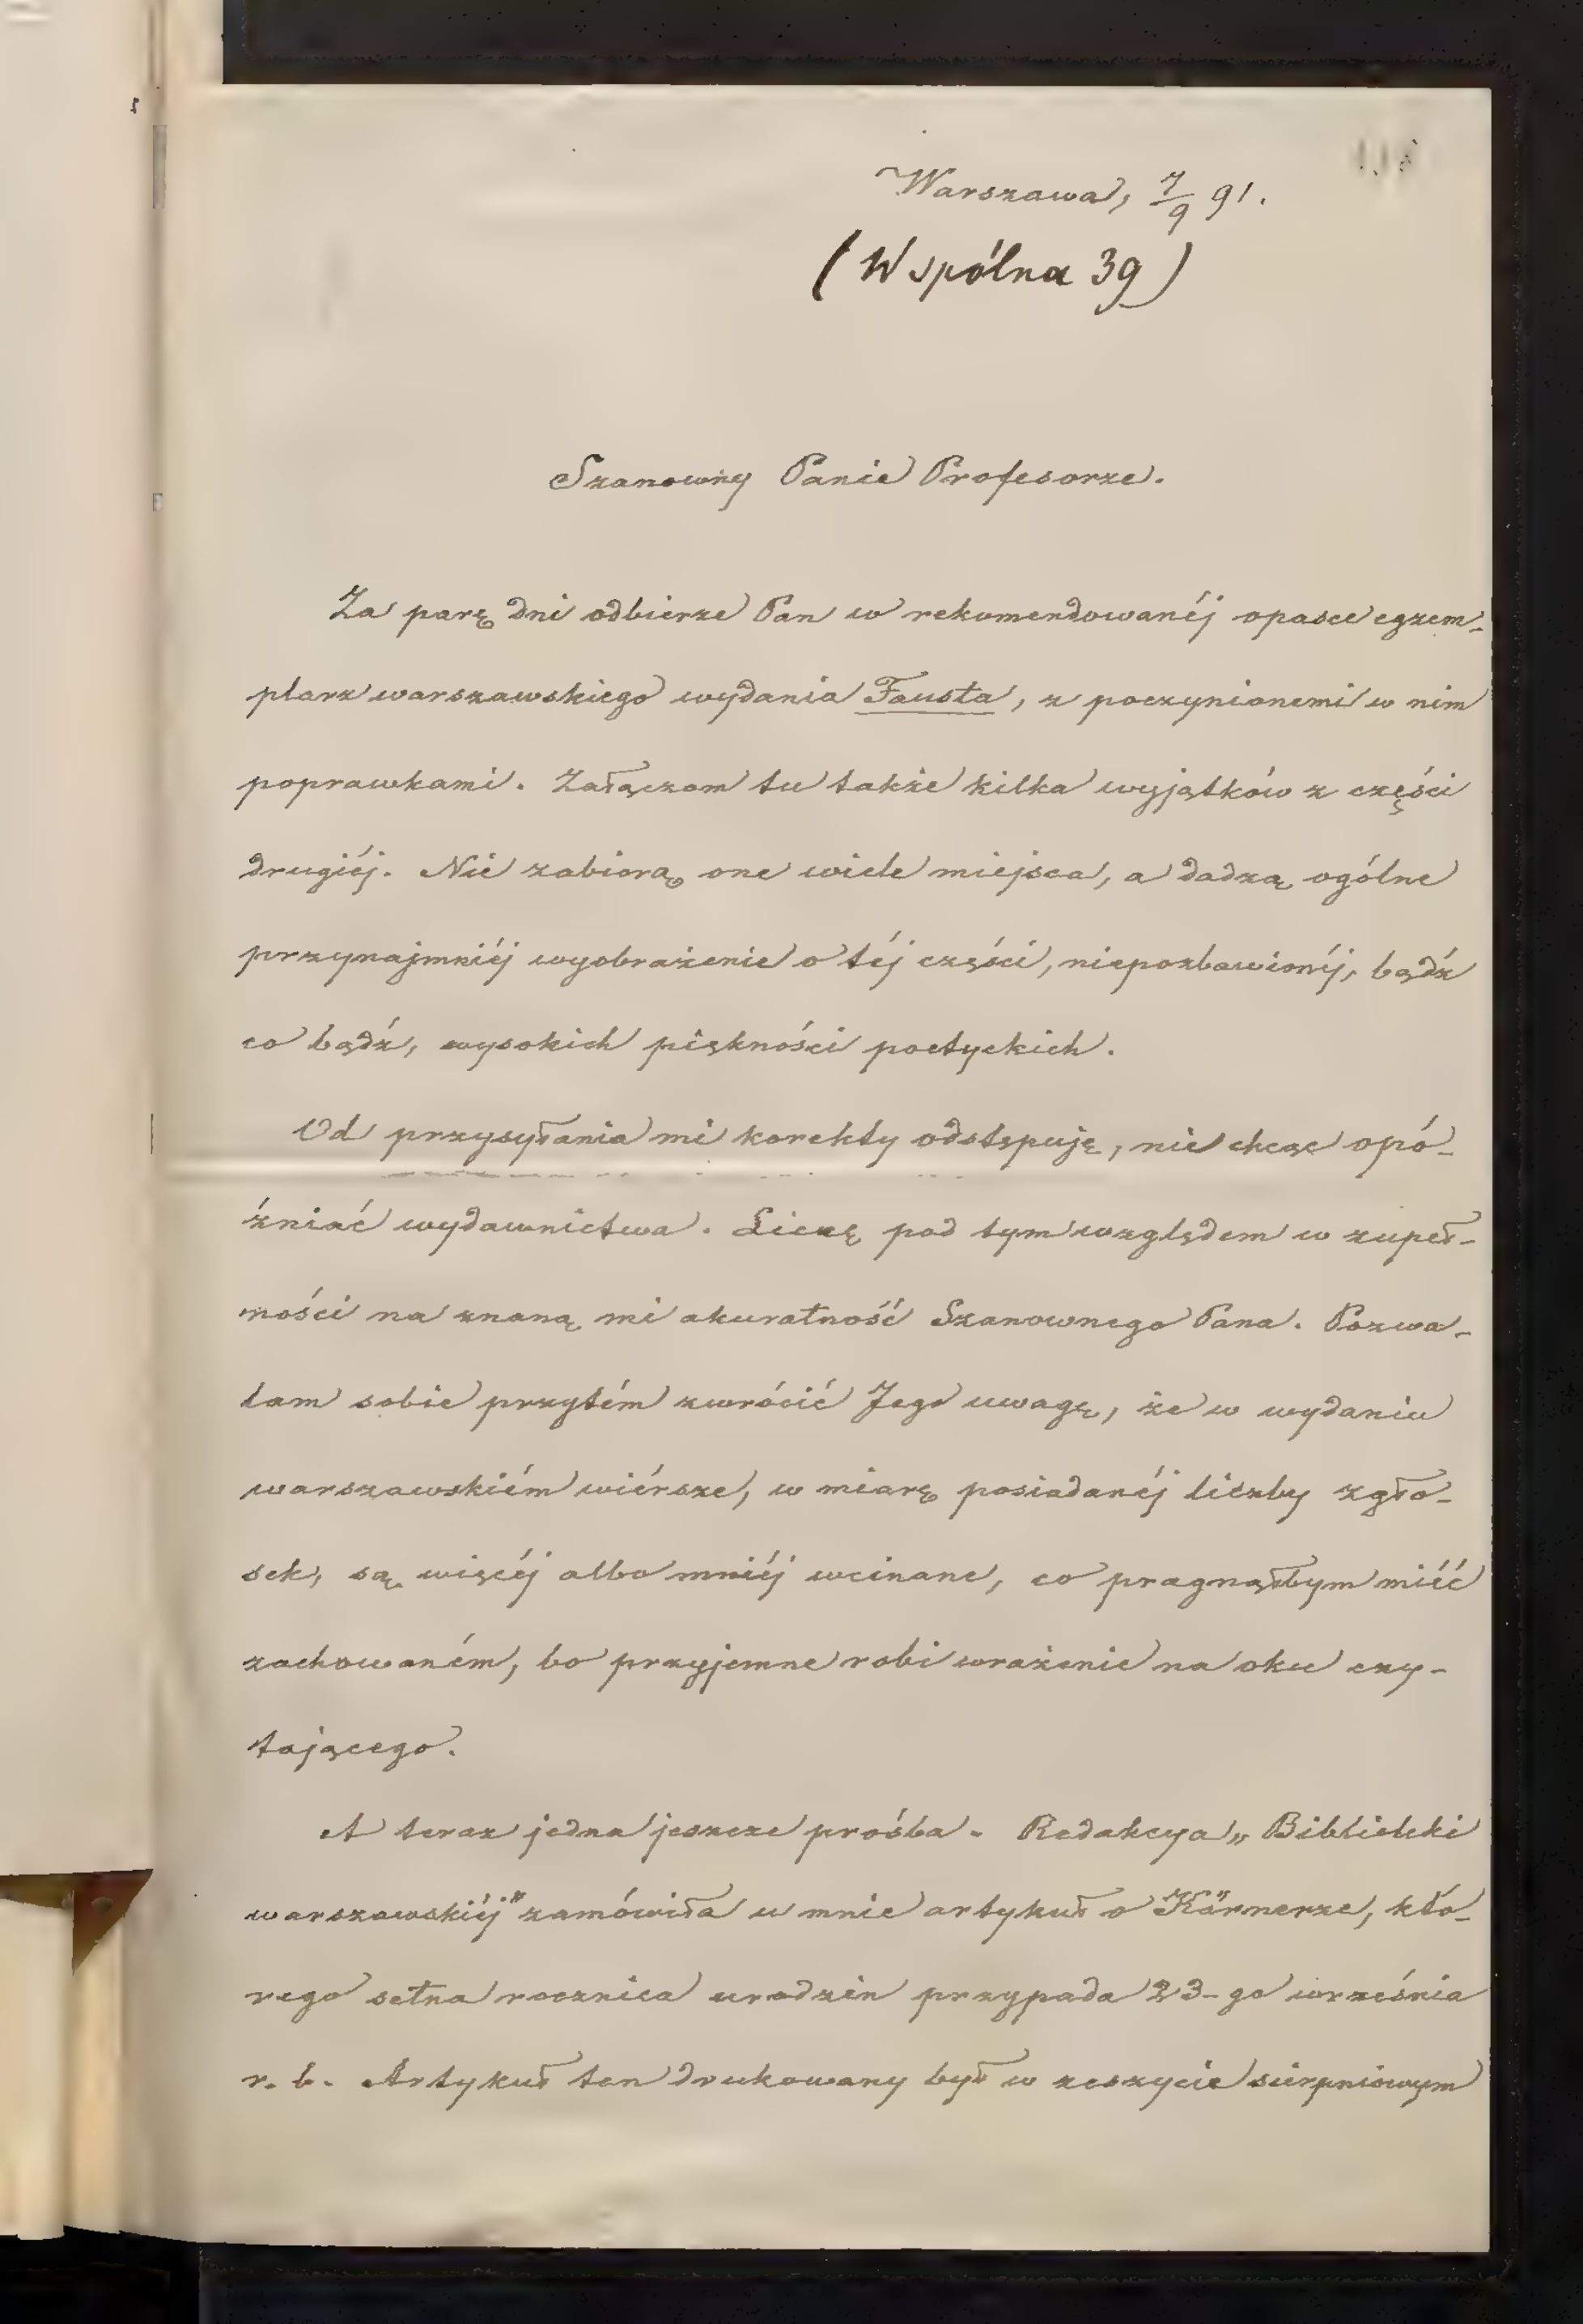 Warszawa, 7/9 91.
(Wspólna 39)
Szanowny Panie Profesorze.
Za parę dni odbierze Pan w rekomendowanéj opasce egzem-
plarz warszawskiego wydania Fausta, z poczynionemi w nim
poprawkami. Załączam tu także kilka wyjątków z części
drugiéj. Nie zabiorą one wiele miejsca, a dadzą ogólne
przynajmniéj wyobrażenie o téj części, niepozbawionéj, bądź
co bądź, wysokich piękności poetyckich.
Od przysyłania mi korekty odstępuję, nie chcąc opó-
źniać wydawnictwa. Liczę pod tym względem w zupeł-
ności na znaną mi akuratność Szanownego Pana. Pozwa-
lam sobie przytém zwrócić Jego uwagę, że w wydaniu
warszawskiém wiérsze, w miarę posiadanéj liczby zgło-
sek, są więcéj albo mniéj wcinane, co pragnąłbym miéć
zachowaném, bo przyjemne robi wrażenie na oku czy-
tającego.
A teraz jedna jeszcze prośba. Redakcya „Biblioteki
warszawskiéj" zamówiła u mnie artykuł o Körnerze, któ-
rego setna rocznica urodzin przypada 23-go września
r. b. Artykuł ten drukowany był w zeszycie sierpniowym